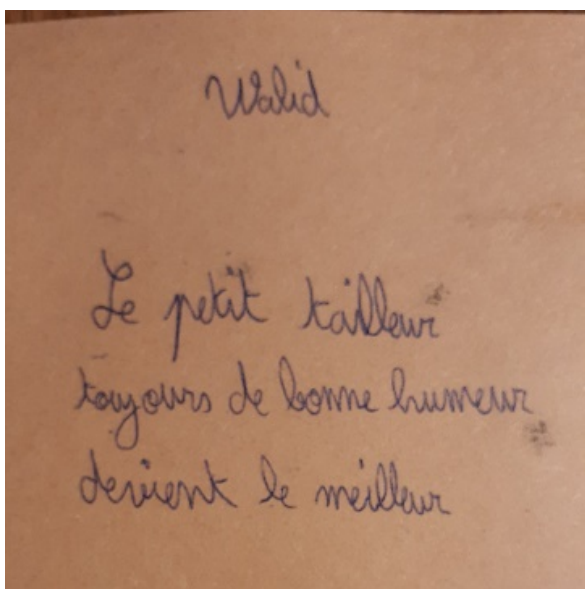 Walid
Le petit tailleur
toujours de bonne humeur
devient le meilleur